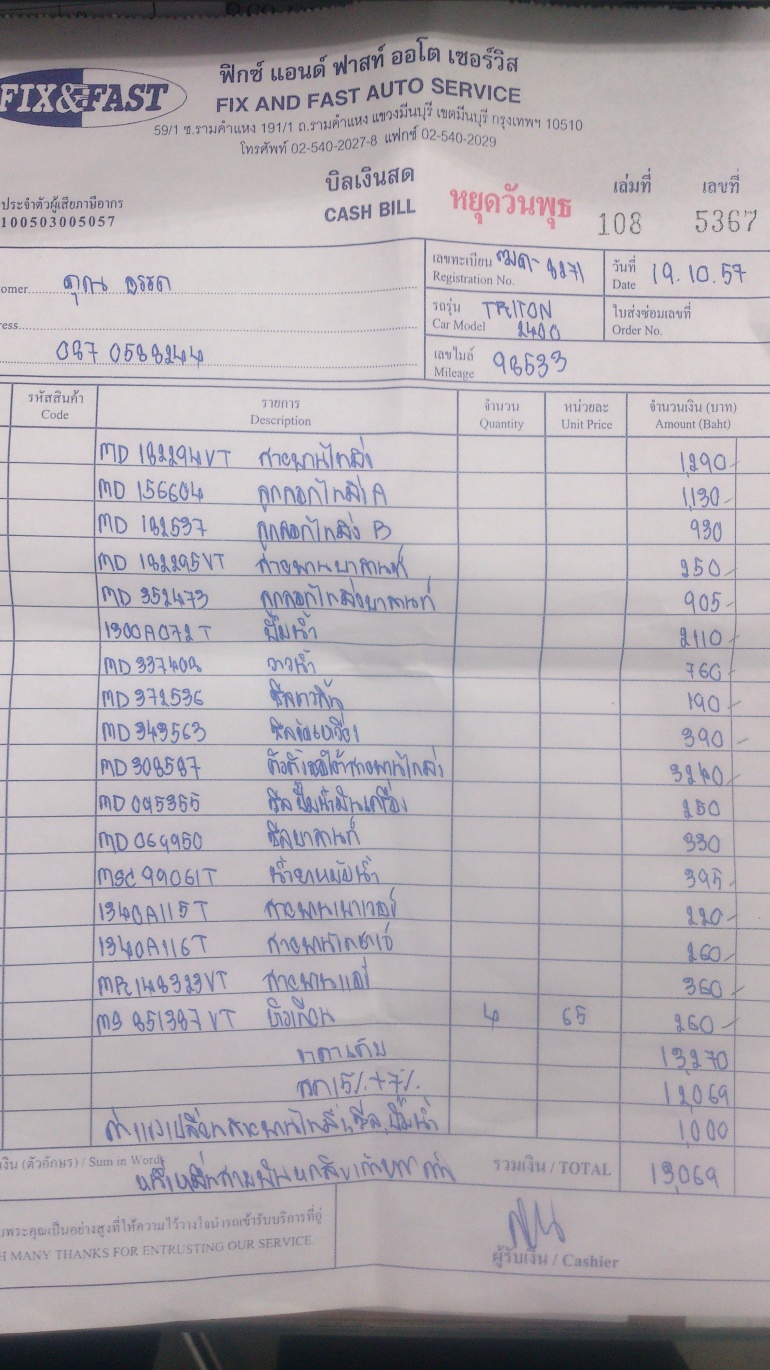 FIX&FAST
ฟิกซ์ แอนด์ ฟาสท์ ออโต เซอร์วิส
FIX AND FAST AUTO SERVICE
59/1 ซ.รามคำแหง 191/1 ถ.รามคำแหง แขวงมีนบุรี เขตมีนบุรี กรุงเทพฯ 10510
โทรศัพท์ 02-540-2027-8 แฟกซ์ 02-540-2029
บิลเงินสด
CASH BILL
หยุดวันพุธ
เล่มที่ เลขที่
108 5367
ประจำตัวผู้เสียภาษีอากร
100503005057
omer คุณ
เลขทะเบียน 8271
Registration No.
วันที่ 19.10.57
Date
ress
รถรุ่น TRITON
Car Model 2400
ใบสั่งซ่อมเลขที่
Order No.
087 0588244
เลขไมล์ 98533
Mileage
รหัสสินค้า รายการ จำนวน หน่วยละ จำนวนเงิน (บาท)
Code Description Quantity Unit Price Amount (Baht)
MD 182294VT สายพานไทม์มิ่ง 1,290
MD 156604 ลูกลอกไทม์มิ่ง A 1,130
MD 182537 ลูกลอกไทม์มิ่ง B 930
MD 182295VT สายพานบาลานซ์ 250
MD 352473 ลูกลอกไทม์มิ่งบาลานซ์ 905
1300A072T ปั๊มน้ำ 2110
MD 337408 วาวน้ำ 760
MD 372536 190
MD 343563 ซีลข้อเหวี่ยง 390
MD 308587 3240
MD 095355 ซีลปั๊มน้ำมันเครื่อง 250
MD 069950 ซีลบาลานซ์ 330
MSC 99061T น้ำยาหม้อน้ำ 395
1340A115T สายพานเพาเวอร์ 220
1340A116T สายพานไดชาร์จ 260
MR 148323VT สายพานแอร์ 360
MS 851387VT หัวเทียน 4 65 260
ราคาเต็ม 13,270
ลด 15%+7% 12,069
ค่าแรงเปลี่ยนสายพานไทม์มิ่ง,ซีล,ปั๊มน้ำ 1,000
งิน (ตัวอักษร) / Sum in Word หนึ่งหมื่นสามพันหกสิบเก้าบาทถ้วน รวมเงิน / TOTAL 13,069
บพระคุณเป็นอย่างสูงที่ให้ความไว้วางใจนำรถเข้ารับบริการที่อู่
H MANY THANKS FOR ENTRUSTING OUR SERVICE.
ผู้รับเงิน / Cashier